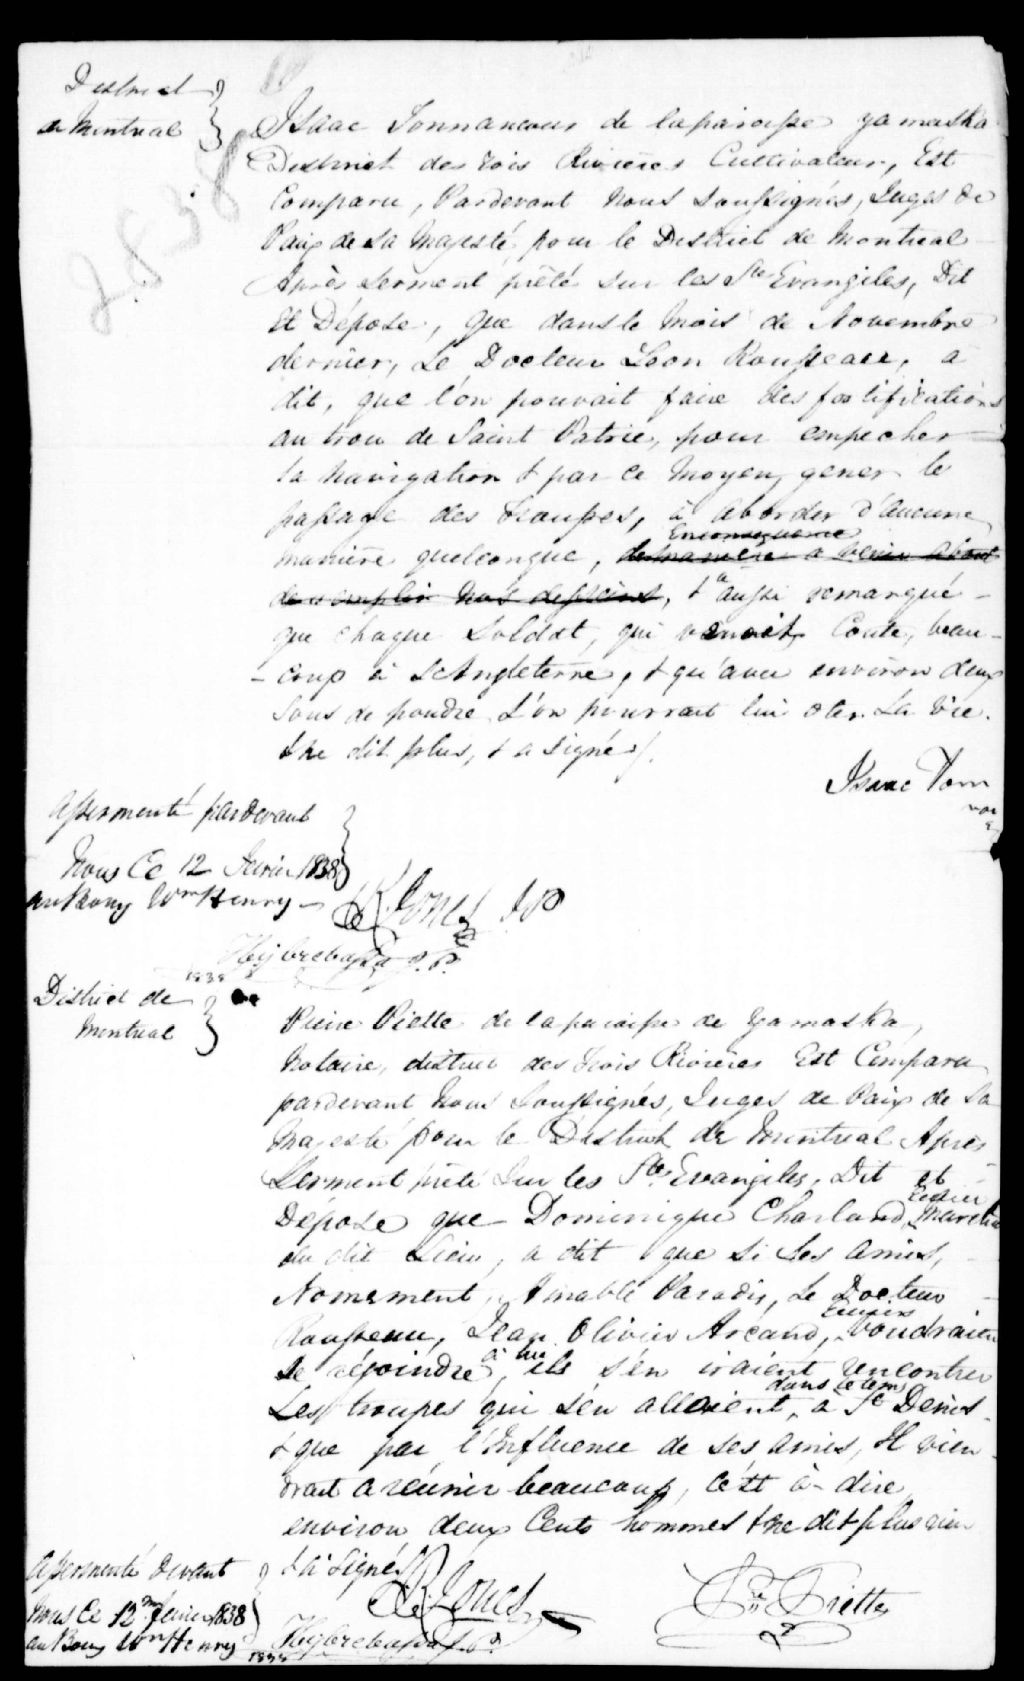 District
de Montreal
2838
Isaac Tonnancour de la paroisse yamaska
District des trois Rivières Cultivateur, Est
Comparu, Pardevant Nous Soussignés, Juges de
Paix de Sa Majesté, pour le District de Montreal
Après Serment prêté sur les Stes Evangiles, Dit
Et Dépose, que dans le Mois de Novembre
dernier, Le Docteur Leon Rousseau, a
dit, que l'on pouvait faire des fortifications
au trou de Saint Patrice, pour empecher
la Navigation & par ce Moyen, gener le
passage des troupes, à aborder d'aucune
manière quelconque, de manière a venir about
de remplir nos desseins, & a aussi remarqué
que chaque Soldat, qui venait, Coute, beau-
- coup à L'Angleterre, & qu'avec environ deux
Sous de poudre L'on pourrait lui oter La Vie.
& ne dit plus, & a signé /.
Isaac Tonn
Assermenté pardevant
Nous Ce 12 Fevrier 1838
au Bourg Wm Henry -
R Jones J P
1838
District de
Montreal
Pierre Piette de la paroisse de Yamaska,
Notaire, district des trois Rivières Est Comparu
pardevant Nous Soussignés, Juges de Paix de Sa
Majesté pour le District de Montreal Après
Serment prêté Sur les Stes Evangiles, Dit et
Dépose que Dominique Charland,
du dit Lieu, a dit que si Ses amis,
Nomément, Amable Paradis, Le Docteur
Rousseau, Jean Olivier Arcand, voudraient
se rejoindre à lui, ils s'en iraient rencontrer
Les troupes qui s'en allaient, dans le tems a St Denis
& que par l'influence de ses amis, Il vien-
drait a reunir beaucoup, c'est à-dire
environ deux Cents hommes & ne dit plus rien
& a signé
Assermenté devant
Nous Ce 12me fevrier 1838
au Bourg Wm Henry
1838
R Jones
Pre Piette